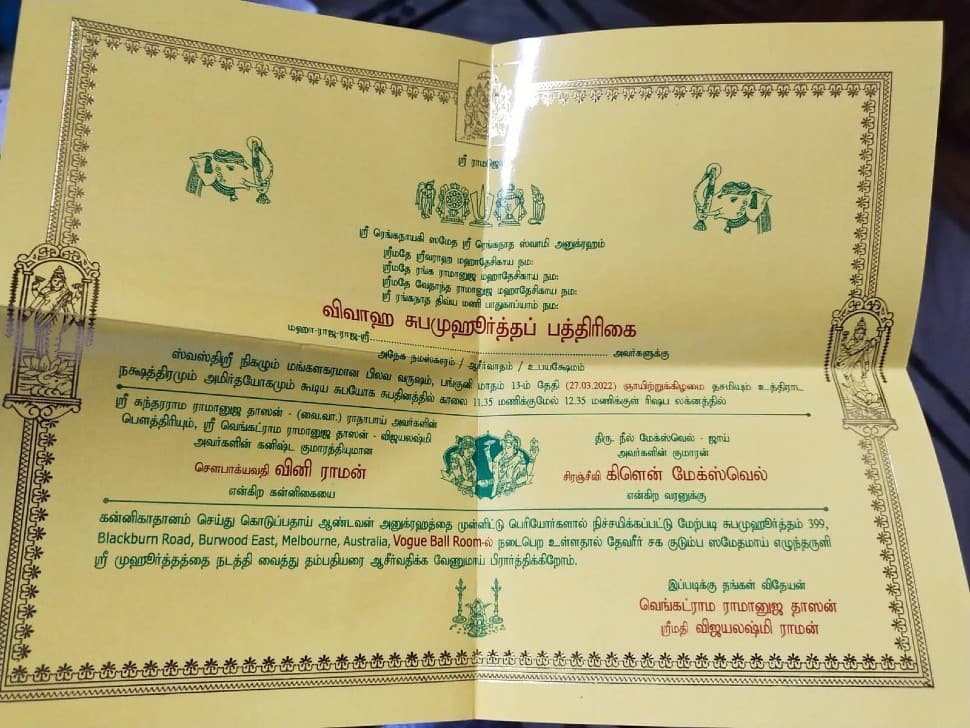 ஸ்ரீ
ஸ்ரீ ரெங்கநாயகி ஸமேத ஸ்ரீ ரெங்கநாத ஸ்வாமி அனுக்ரஹம்
ஸ்ரீமதே ஸ்ரீவராஹ மஹாதேசிகாய நம:
ஸ்ரீமதே ரங்க ராமானுஜ மஹாதேசிகாய நம:
ஸ்ரீமதே வேதாந்த ராமானுஜ மஹாதேசிகாய நம:
ஸ்ரீ ரங்கநாத திவ்ய மணி பாதுகாப்யாம் நம:
விவாஹ சுபமுஹூர்த்தப் பத்திரிகை
மஹா-ராஜ-ராஜ-ஸ்ரீ.......................................................... அவர்களுக்கு
அநேக நமஸ்காரம் / ஆசீர்வாதம் / உபயக்ஷேமம்
ஸ்வஸ்திஸ்ரீ நிகழும் மங்களகரமான பிலவ வருஷம், பங்குனி மாதம் 13-ம் தேதி (27.03.2022) ஞாயிற்றுக்கிழமை தசமியும் உத்திராட
நக்ஷத்திரமும் அமிர்தயோகமும் கூடிய சுபயோக சுபதினத்தில் காலை 11.35 மணிக்குமேல் 12.35 மணிக்குள் ரிஷப லக்னத்தில்
ஸ்ரீ சுந்தரராம ராமானுஜ தாஸன் - (வை.வா.) ராதாபாய் அவர்களின்
பௌத்திரியும், ஸ்ரீ வெங்கட்ராம ராமானுஜ தாஸன் - விஜயலஷ்மி
அவர்களின் கனிஷ்ட குமாரத்தியுமான
சௌபாக்யவதி வினி ராமன்
என்கிற கன்னிகையை
திரு. நீல் மேக்ஸ்வெல் - ஜாய்
அவர்களின் குமாரன்
சிரஞ்சீவி கிளென் மேக்ஸ்வெல்
என்கிற வரனுக்கு
கன்னிகாதானம் செய்து கொடுப்பதாய் ஆண்டவன் அனுக்ரஹத்தை முன்னிட்டு பெரியோர்களால் நிச்சயிக்கப்பட்டு மேற்படி சுபமுஹூர்த்தம் 399,
Blackburn Road, Burwood East, Melbourne, Australia, Vogue Ball Room-ல் நடைபெற உள்ளதால் தேவரீர் சக குடும்ப ஸமேதமாய் எழுந்தருளி
ஸ்ரீ முஹூர்த்தத்தை நடத்தி வைத்து தம்பதியரை ஆசீர்வதிக்க வேணுமாய் பிரார்த்திக்கிறோம்.
இப்படிக்கு தங்கள் விதேயன்
வெங்கட்ராம ராமானுஜ தாஸன்
ஸ்ரீமதி விஜயலஷ்மி ராமன்